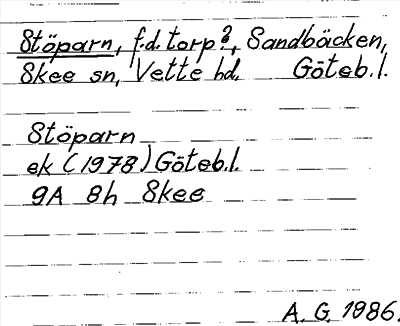 Stöparn, f.d. torp?, Sandbäcken,
Skee sn, Vette hd. Göteb.l.
Stöparn
ek (1978) Göteb.l.
9A 8h Skee
A. G. 1986.